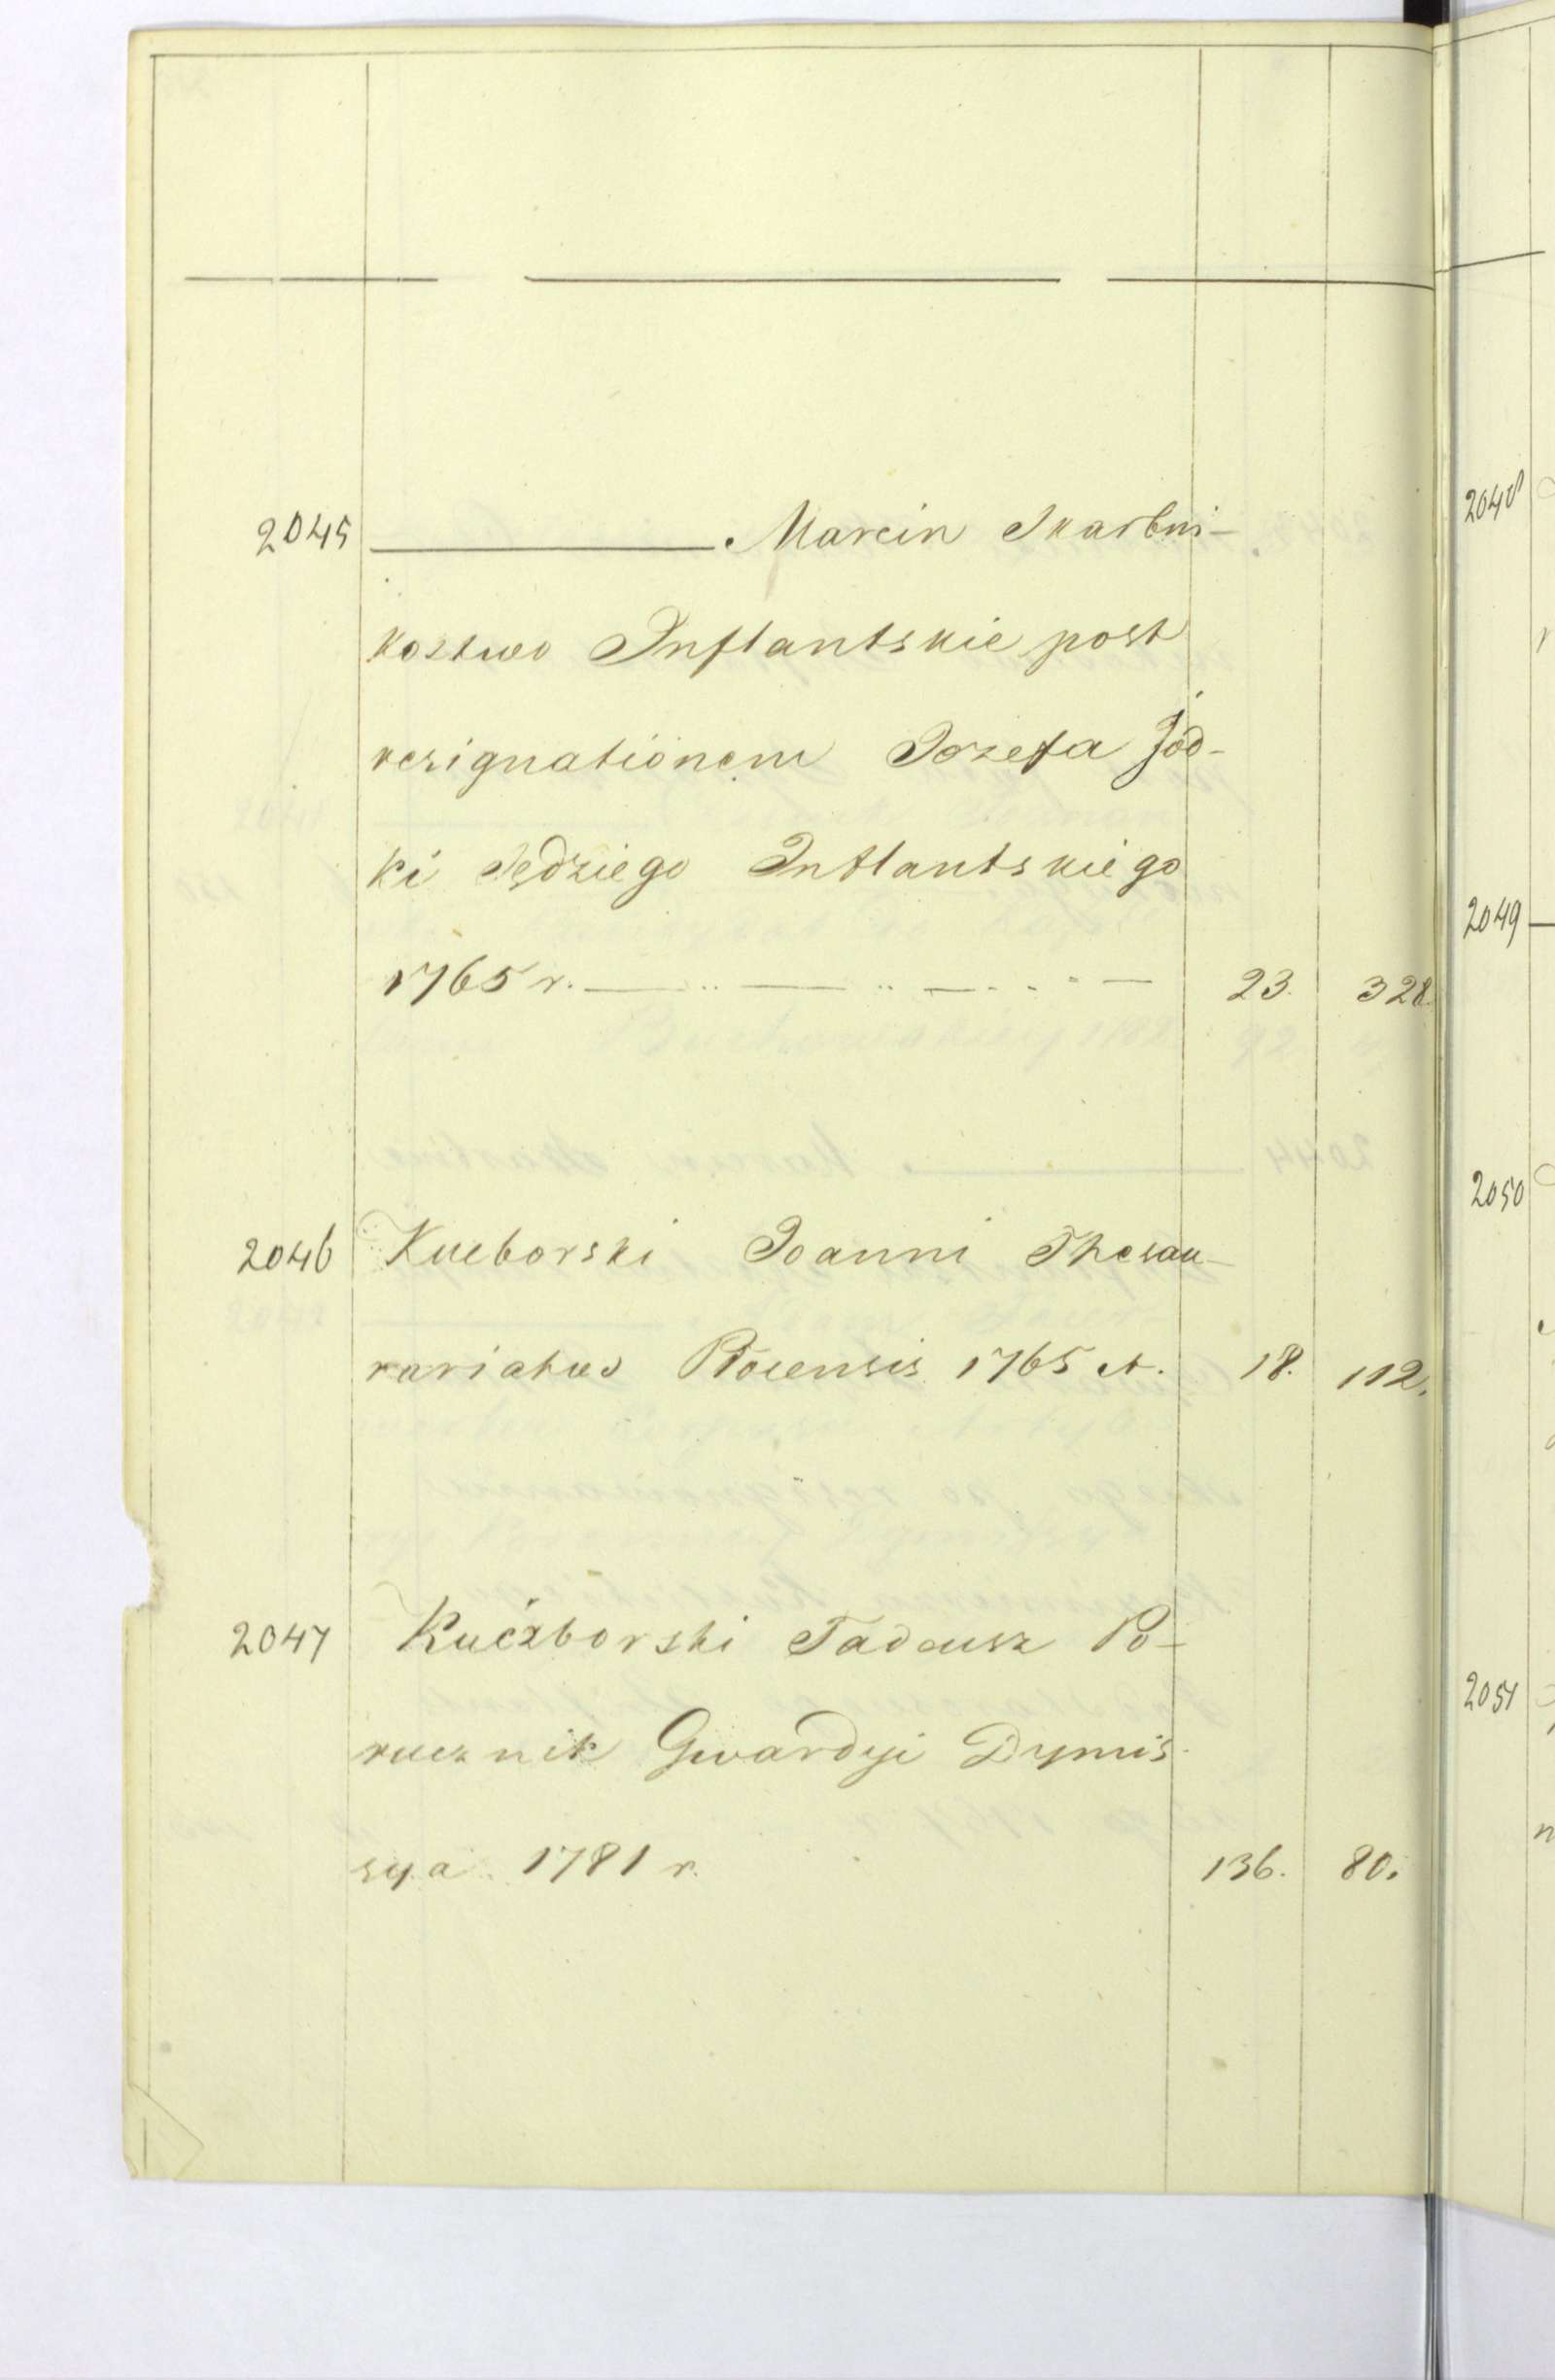 2045 ———. Marcin Skarbni-
kostwo Inflantskie post
resignationem Jozefa Jód-
ki Sędziego Inflantskiego
1765 r. — .. — .. — . - . - — 23. 328.
2046 Kucborski Joanni Thesau-
rariatus Plocensis 1765 A. 18. 112.
2047 Kuczborski Tadeusz Po-
rucznik Gwardyi Dymis-
sya 1781 r. 136. 80.
2048
2049 —
2050
2051